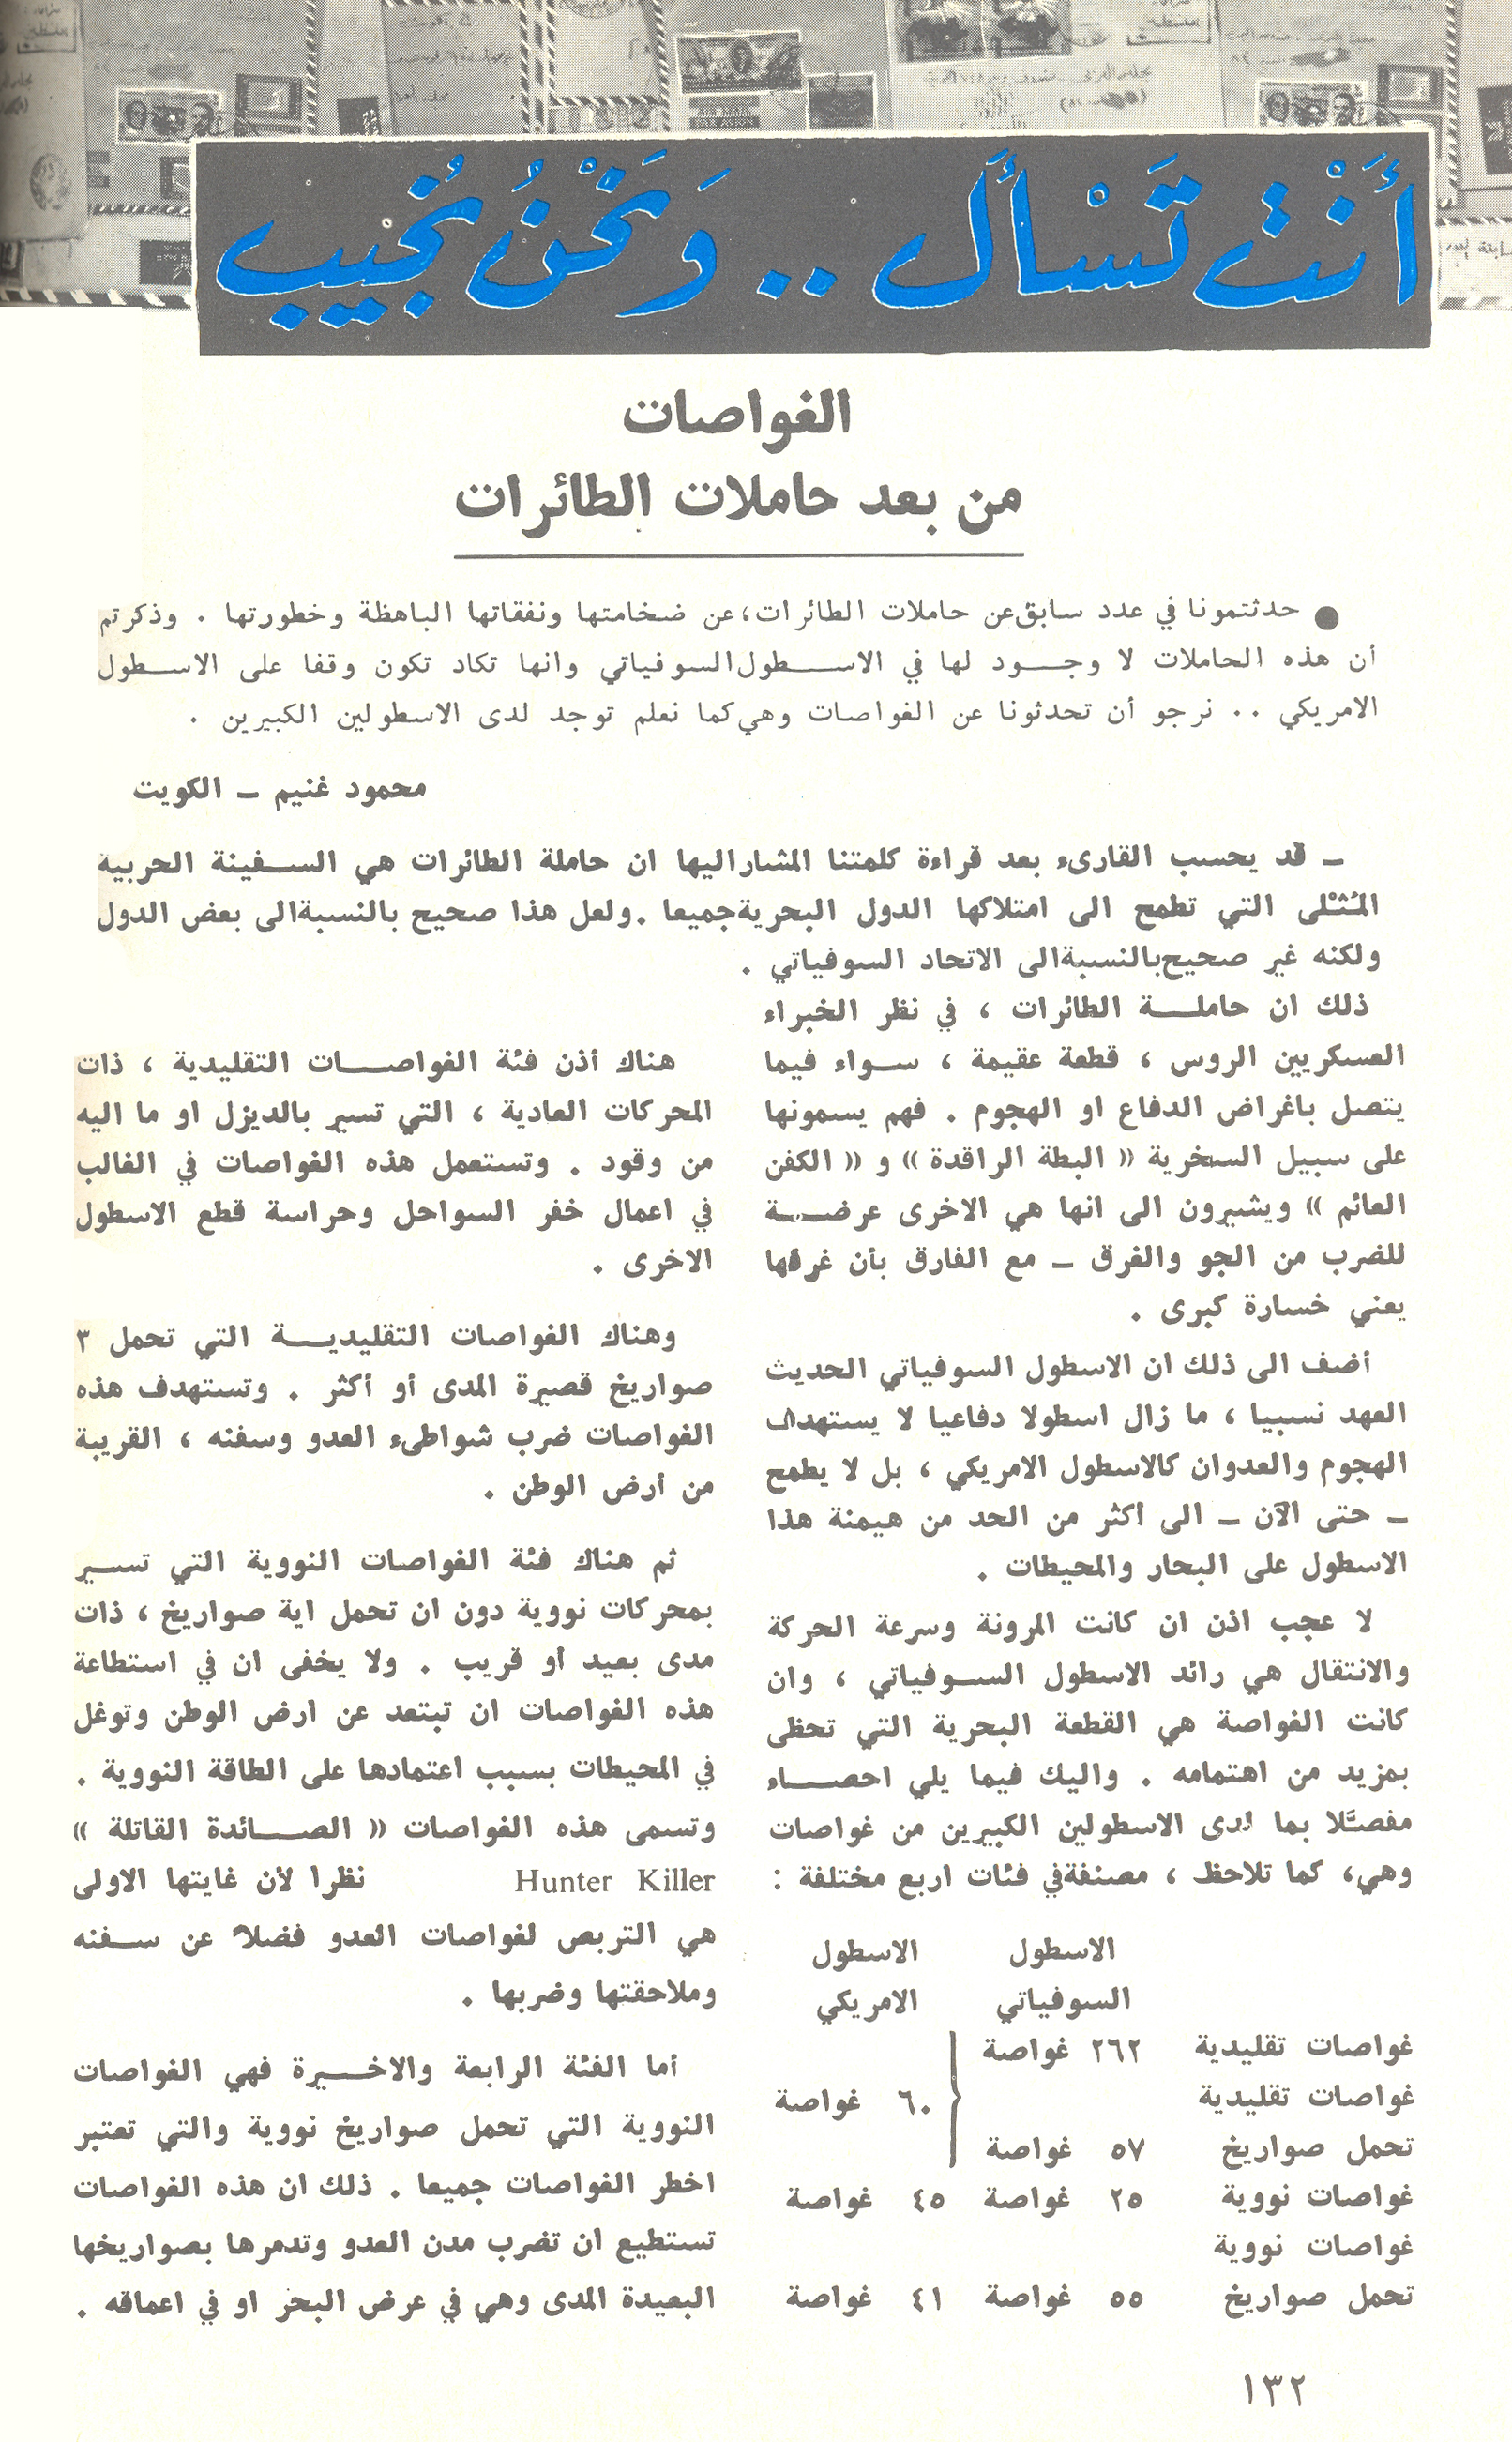 أَنْتَ تَسْأَل .. وَنَحْنُ نُجِيب
الغواصات
من بعد حاملات الطائرات
● حدثتمونا في عدد سابق عن حاملات الطائرات، عن ضخامتها ونفقاتها الباهظة وخطورتها . وذكرتم
أن هذه الحاملات لا وجود لها في الاسطول السوفياتي وانها تكاد تكون وقفا على الاسطول
الامريكي .. نرجو أن تحدثونا عن الغواصات وهي كما نعلم توجد لدى الاسطولين الكبيرين .
محمود غنيم – الكويت
– قد يحسب القارىء بعد قراءة كلمتنا المشار اليها ان حاملة الطائرات هي السفينة الحربية
المُثْلى التي تطمح الى امتلاكها الدول البحرية جميعا . ولعل هذا صحيح بالنسبة الى بعض الدول
ولكنه غير صحيح بالنسبة الى الاتحاد السوفياتي .
ذلك ان حاملة الطائرات ، في نظر الخبراء
العسكريين الروس ، قطعة عقيمة ، سواء فيما
يتصل باغراض الدفاع او الهجوم . فهم يسمونها
على سبيل السخرية « البطة الراقدة » و « الكفن
العائم » ويشيرون الى انها هي الاخرى عرضة
للضرب من الجو والغرق – مع الفارق بأن غرقها
يعني خسارة كبرى .
أضف الى ذلك ان الاسطول السوفياتي الحديث
العهد نسبيا ، ما زال اسطولا دفاعيا لا يستهدف
الهجوم والعدوان كالاسطول الامريكي ، بل لا يطمح
– حتى الآن – الى أكثر من الحد من هيمنة هذا
الاسطول على البحار والمحيطات .
لا عجب اذن ان كانت المرونة وسرعة الحركة
والانتقال هي رائد الاسطول السوفياتي ، وان
كانت الغواصة هي القطعة البحرية التي تحظى
بمزيد من اهتمامه . واليك فيما يلي احصاء
مفصّلا بما لدى الاسطولين الكبيرين من غواصات
وهي، كما تلاحظ ، مصنفة في فئات اربع مختلفة :
الاسطول الاسطول
السوفياتي الامريكي
غواصات تقليدية ٢٦٢ غواصة
غواصات تقليدية ٦٠ غواصة
تحمل صواريخ ٥٧ غواصة
غواصات نووية ٢٥ غواصة ٤٥ غواصة
غواصات نووية
تحمل صواريخ ٥٥ غواصة ٤١ غواصة
هناك أذن فئة الغواصات التقليدية ، ذات
المحركات العادية ، التي تسير بالديزل او ما اليه
من وقود . وتستعمل هذه الغواصات في الغالب
في اعمال خفر السواحل وحراسة قطع الاسطول
الاخرى .
وهناك الغواصات التقليدية التي تحمل ٣
صواريخ قصيرة المدى أو أكثر . وتستهدف هذه
الغواصات ضرب شواطىء العدو وسفنه ، القريبة
من أرض الوطن .
ثم هناك فئة الغواصات النووية التي تسير
بمحركات نووية دون ان تحمل اية صواريخ ، ذات
مدى بعيد أو قريب . ولا يخفى ان في استطاعة
هذه الغواصات ان تبتعد عن ارض الوطن وتوغل
في المحيطات بسبب اعتمادها على الطاقة النووية .
وتسمى هذه الغواصات « الصائدة القاتلة »
Hunter Killer نظرا لأن غايتها الاولى
هي التربص لغواصات العدو فضلا عن سفنه
وملاحقتها وضربها .
أما الفئة الرابعة والاخيرة فهي الغواصات
النووية التي تحمل صواريخ نووية والتي تعتبر
اخطر الغواصات جميعا . ذلك ان هذه الغواصات
تستطيع ان تضرب مدن العدو وتدمرها بصواريخها
البعيدة المدى وهي في عرض البحر او في اعماقه .
١٣٢